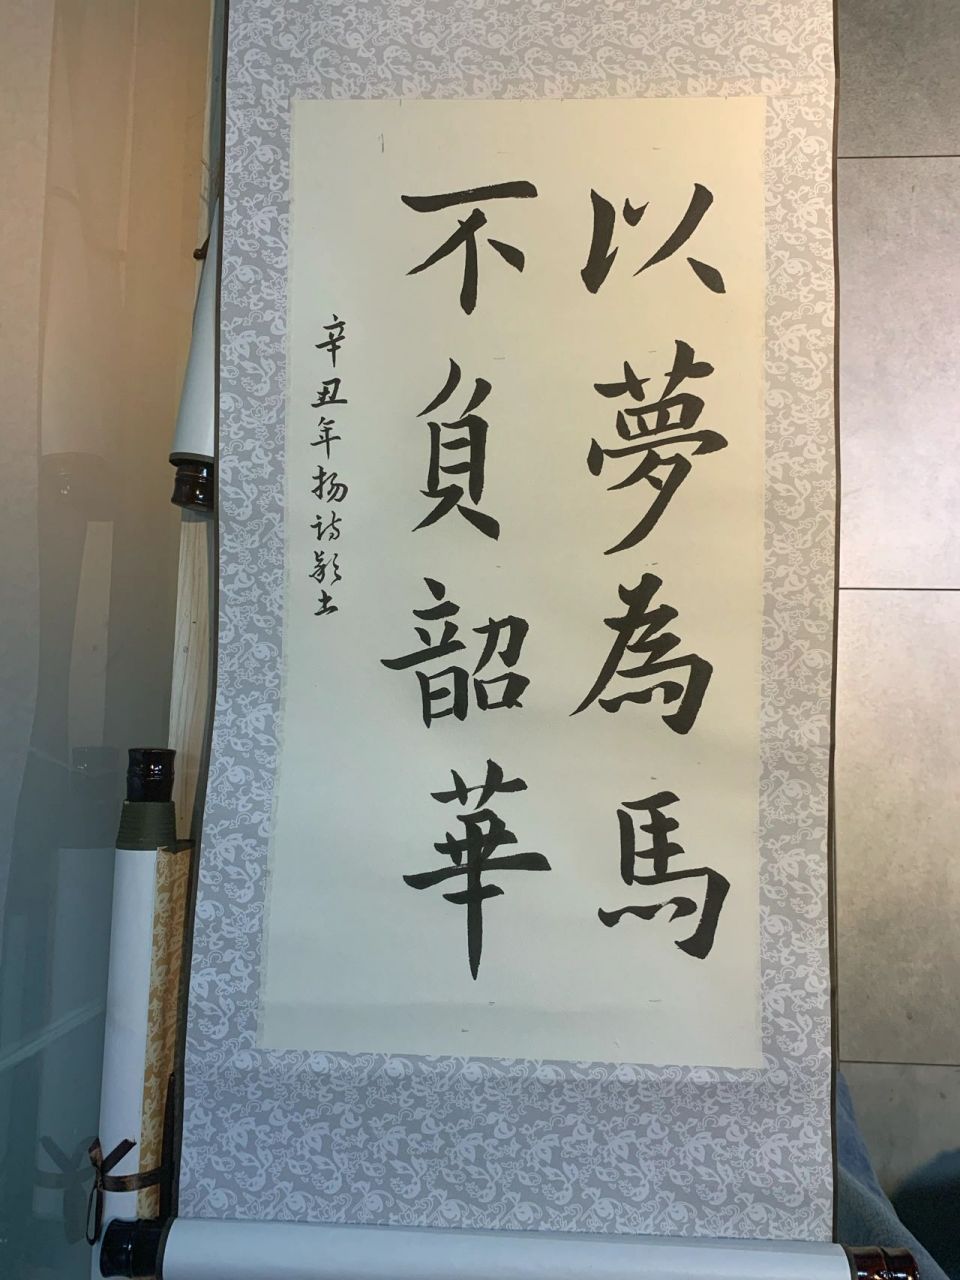 以夢為馬
不負韶華
辛丑年扬诗颖书